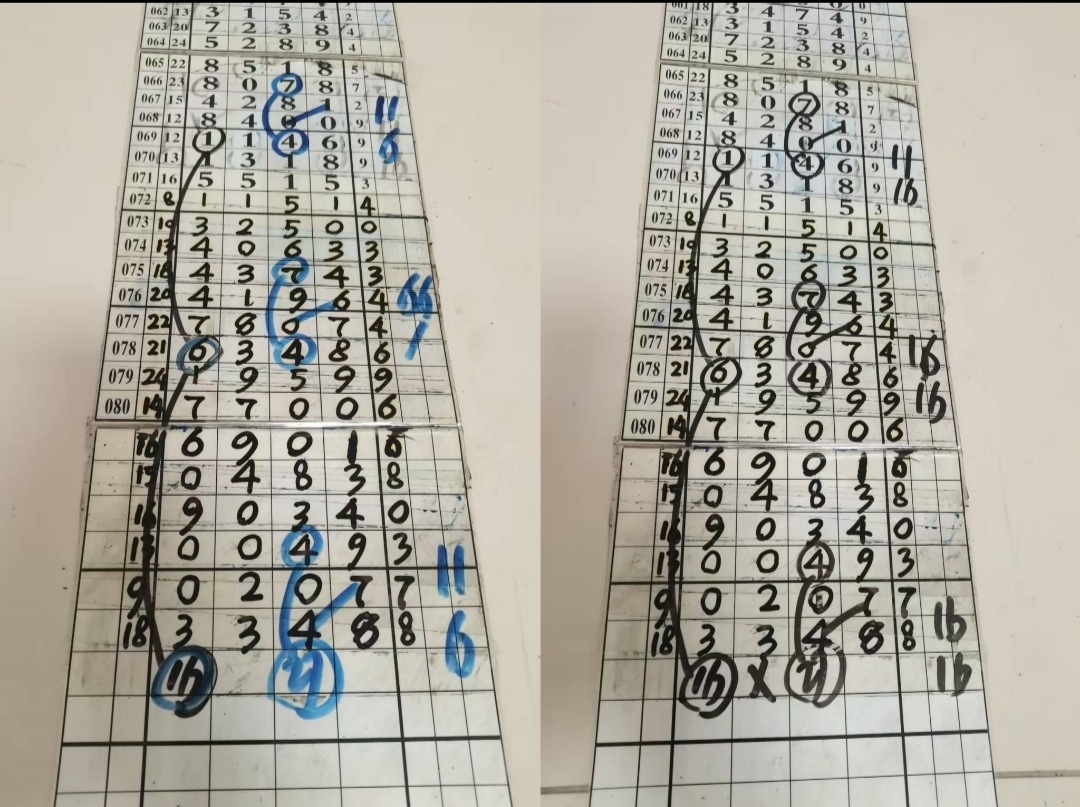 062 13 3 1 5 4 2
063 20 7 2 3 8 4
064 24 5 2 8 9 4
065 22 8 5 1 8 5
066 23 8 0 7 8 7
067 15 4 2 8 1 2 11
068 12 8 4 0 0 9
069 12 1 1 4 6 9 6
070 13 1 3 1 8 9
071 16 5 5 1 5 3
072 8 1 1 5 1 4
073 19 3 2 5 0 0
074 13 4 0 6 3 3
075 18 4 3 7 4 3
076 20 4 1 9 6 4 66
077 22 7 8 0 7 4 1
078 21 6 3 4 8 6
079 24 1 9 5 9 9
080 14 7 7 0 0 6
16 6 9 0 1 6
15 0 4 8 3 8
16 9 0 3 4 0
13 0 0 4 9 3 11
9 0 2 0 7 7
18 3 3 4 8 8 6
16
061 18 3 4 7 4
062 13 3 1 5 4 2
063 20 7 2 3 8 4
064 24 5 2 8 9 4
065 22 8 5 1 8 5
066 23 8 0 7 8 7
067 15 4 2 8 1 2
068 12 8 4 0 0 9
069 12 1 1 4 6 9 11
070 13 1 3 1 8 9 16
071 16 5 5 1 5 3
072 8 1 1 5 1 4
073 19 3 2 5 0 0
074 13 4 0 6 3 3
075 18 4 3 7 4 3
076 20 4 1 9 6 4
077 22 7 8 0 7 4 16
078 21 6 3 4 8 6
079 24 1 9 5 9 9 16
080 14 7 7 0 0 6
16 6 9 0 1 6
15 0 4 8 3 8
16 9 0 3 4 0
13 0 0 4 9 3
9 0 2 0 7 7
18 3 3 4 8 8 16
16 X 16